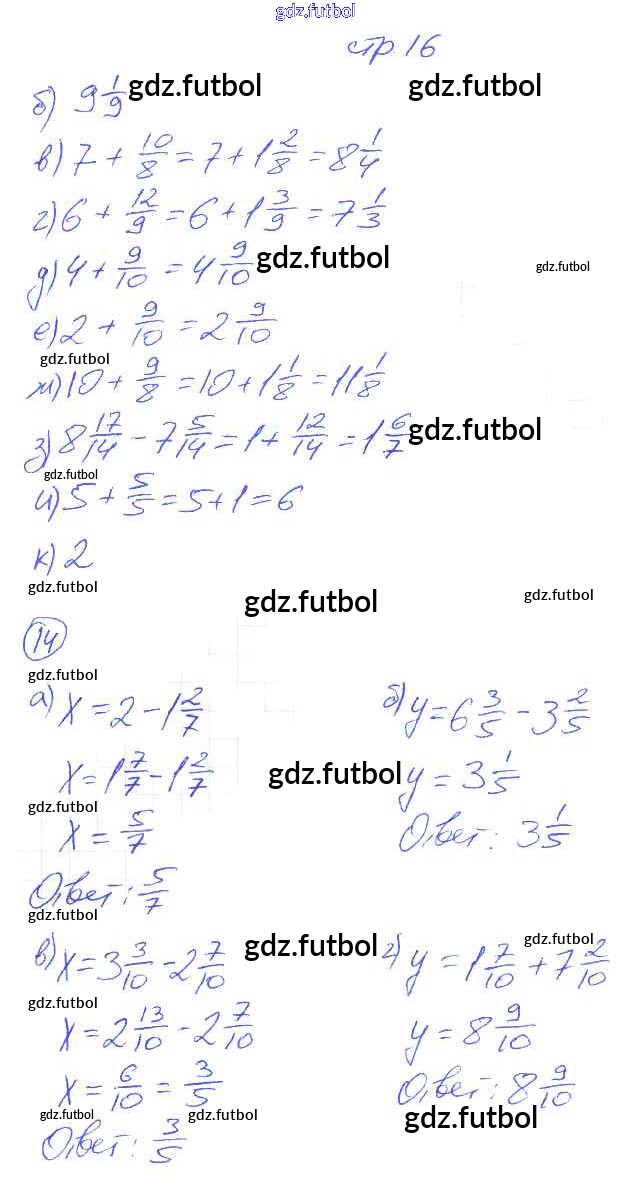 gdz.futbol
стр 16
б) 9 1/9 gdz.futbol gdz.futbol
в) 7 + 10/8 = 7 + 1 2/8 = 8 1/4
г) 6 + 12/9 = 6 + 1 3/9 = 7 1/3
д) 4 + 9/10 = 4 9/10 gdz.futbol gdz.futbol
е) 2 + 9/10 = 2 9/10
gdz.futbol
ж) 10 + 9/8 = 10 + 1 1/8 = 11 1/8
з) 8 17/14 - 7 5/14 = 1 + 12/14 = 1 6/7 gdz.futbol
gdz.futbol
и) 5 + 5/5 = 5 + 1 = 6
к) 2
gdz.futbol gdz.futbol gdz.futbol
14
gdz.futbol
а) x = 2 - 1 2/7 б) y = 6 3/5 - 3 2/5
x = 1 7/7 - 1 2/7 gdz.futbol y = 3 1/5
gdz.futbol
x = 5/7 Ответ: 3 1/5
Ответ: 5/7
gdz.futbol
в) x = 3 3/10 - 2 7/10 gdz.futbol г) y = 1 7/10 + 7 2/10 gdz.futbol
gdz.futbol
x = 2 13/10 - 2 7/10 y = 8 9/10
x = 6/10 = 3/5 Ответ: 8 9/10
gdz.futbol gdz.futbol gdz.futbol
Ответ: 3/5